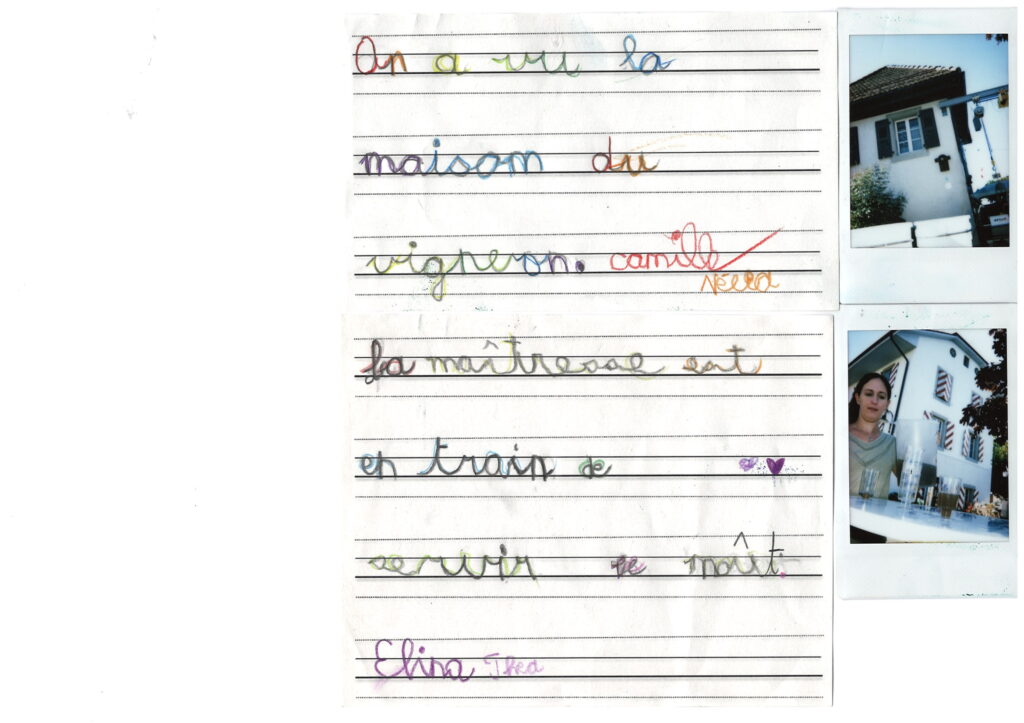 On a vu la
maisom du
vigneron. Camille
Nééla
La maîtresse est
en train de
servir le moût.
Elina Thea